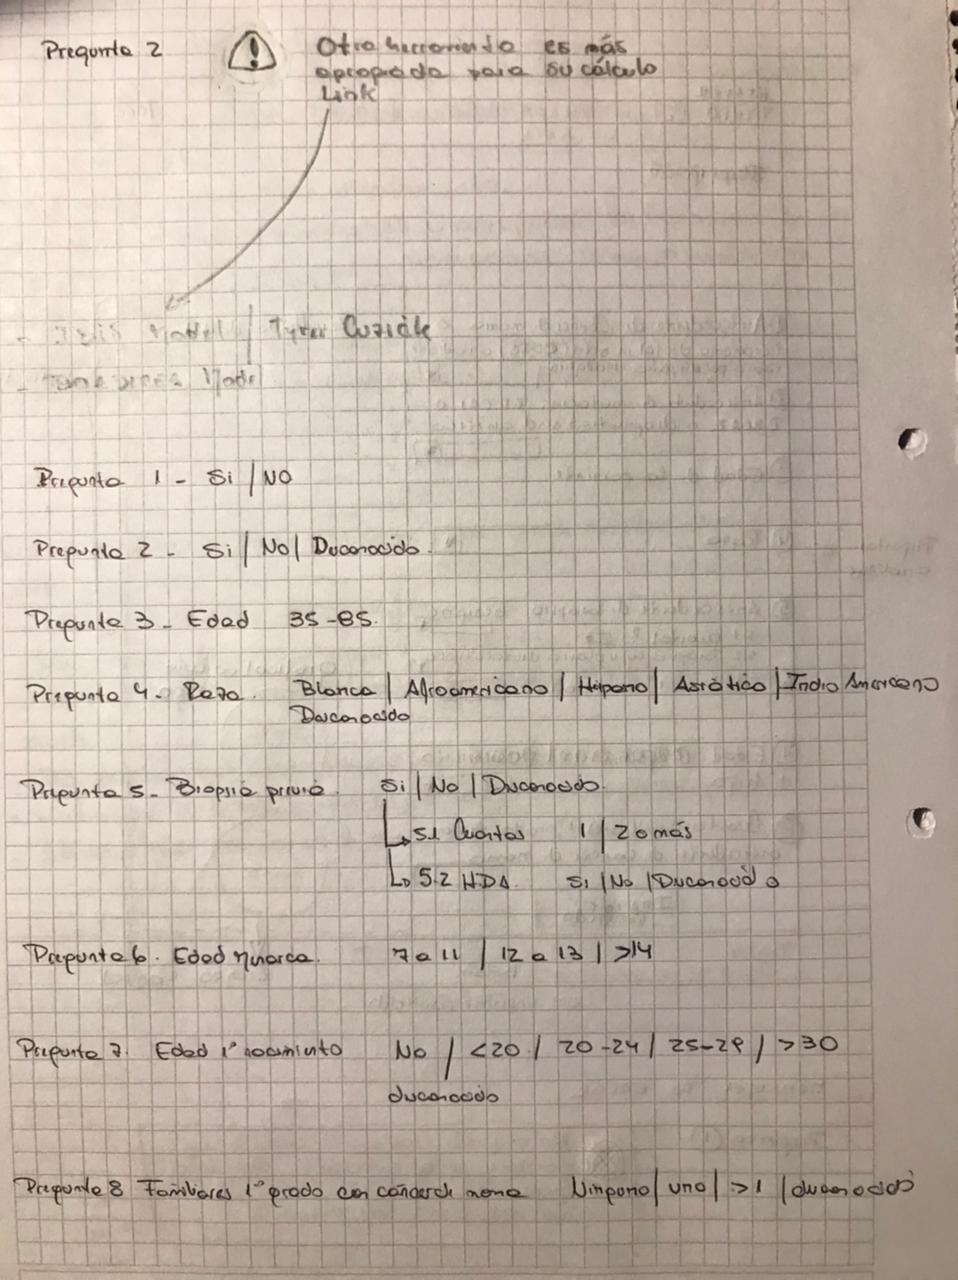 Pregunta 2
Otra herramienta es más
apropiada para su cálculo
Link
- Model / Tyrer Cuzick
- Model
Pregunta 1 - Si / NO
Pregunta 2 - Si / No / Desconocido.
Pregunta 3 - Edad 35-85.
Pregunta 4 - Raza. Blanca | Afroamericano / Hispano | Asiático | Indio Americano
Desconocido
Pregunta 5 - Biopsia previa. Si / No / Desconocido.
↳ 5.1 Cuantas 1 / 2 o más
↳ 5.2 HDA. Si / No / Desconocido
Pregunta 6. Edad menarca. 7 a 11 / 12 a 13 / >14
Pregunta 7. Edad 1º nacimiento No / <20 / 20-24 / 25-29 / >30
desconocido
Pregunta 8 Familiares 1º grado con cáncer de mama Ninguno / uno / >1 / desconocido